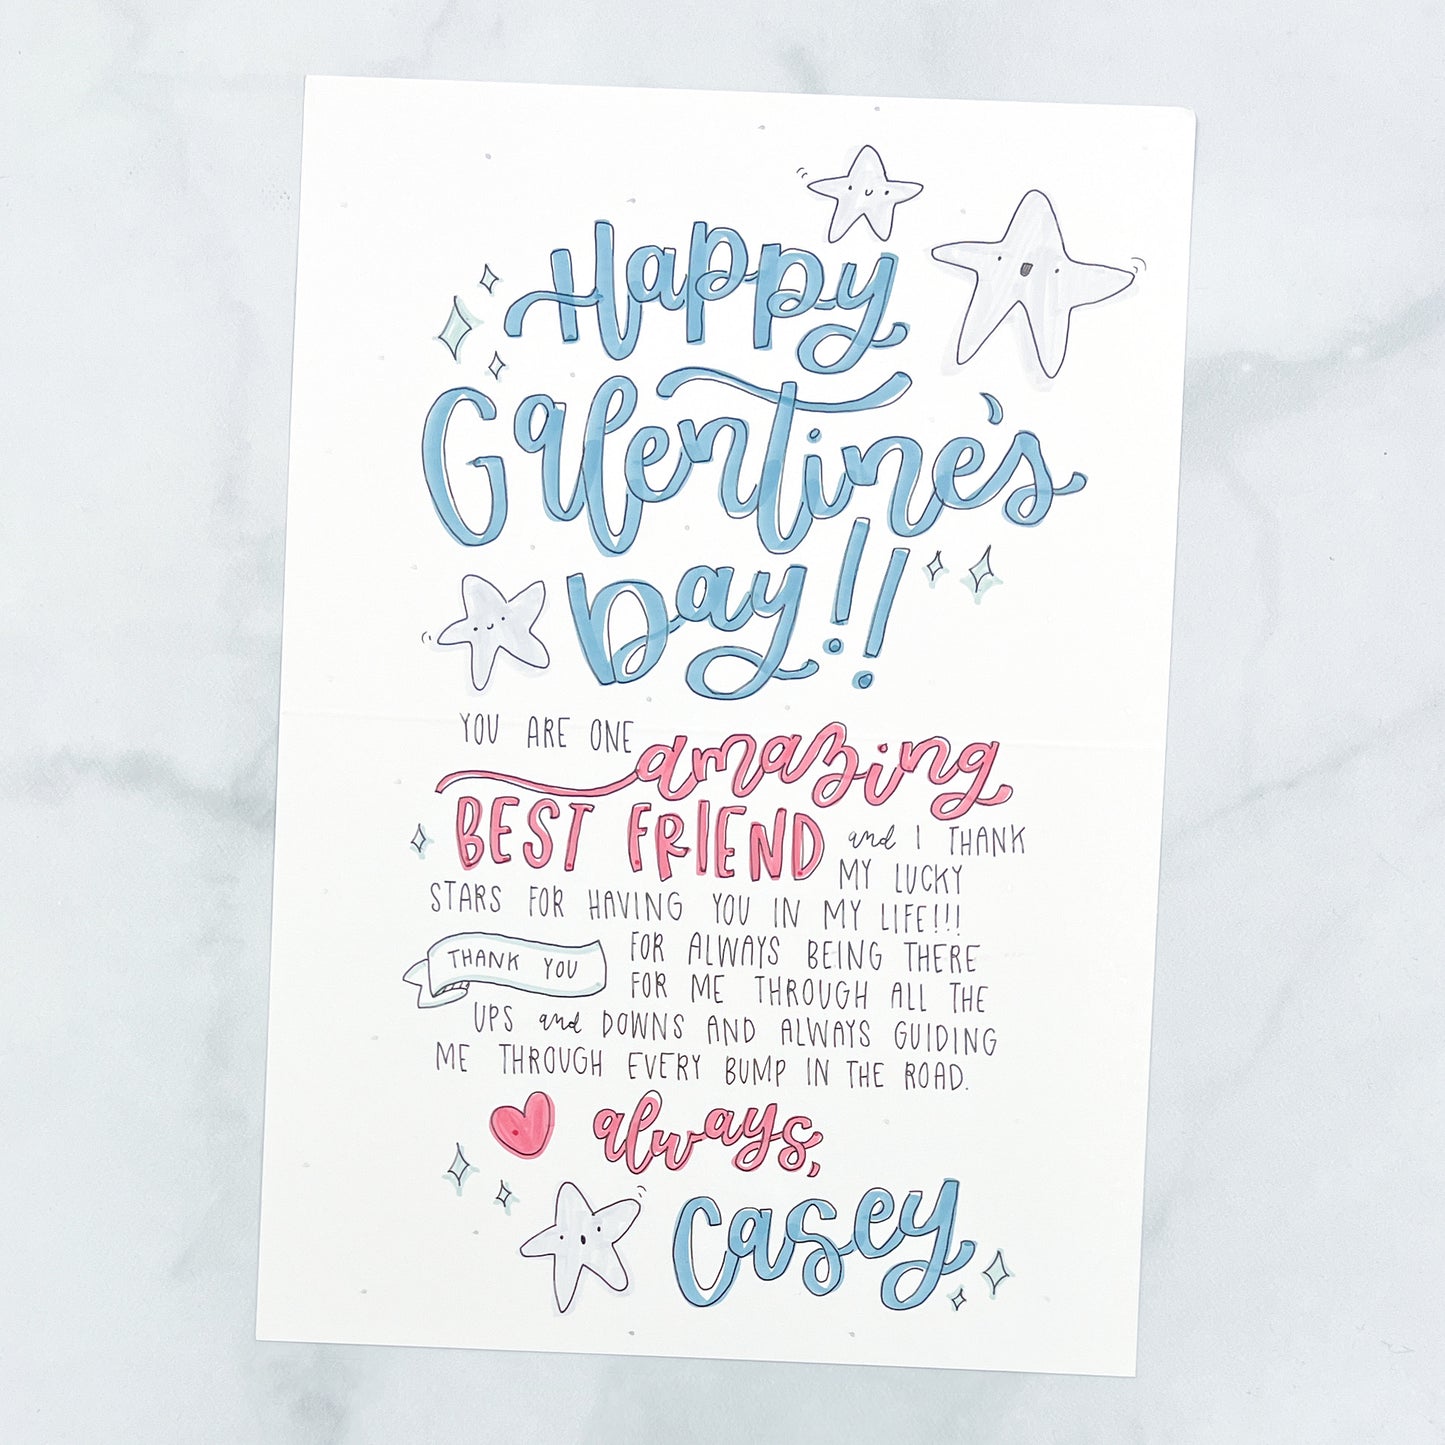 Happy
Galentine's
Day!!
YOU ARE ONE amazing
BEST FRIEND and I THANK
MY LUCKY
STARS FOR HAVING YOU IN MY LIFE!!!
THANK YOU FOR ALWAYS BEING THERE
FOR ME THROUGH ALL THE
UPS and DOWNS AND ALWAYS GUIDING
ME THROUGH EVERY BUMP IN THE ROAD.
always,
Casey